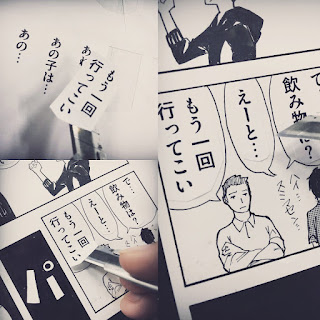 もう一回
行ってこい
あの子は…
あの…
飲み物は?
えーと…
もう一回
行ってこい
スミマセン…
で…
飲み物は?
えーと…
もう一回
行ってこい
パ